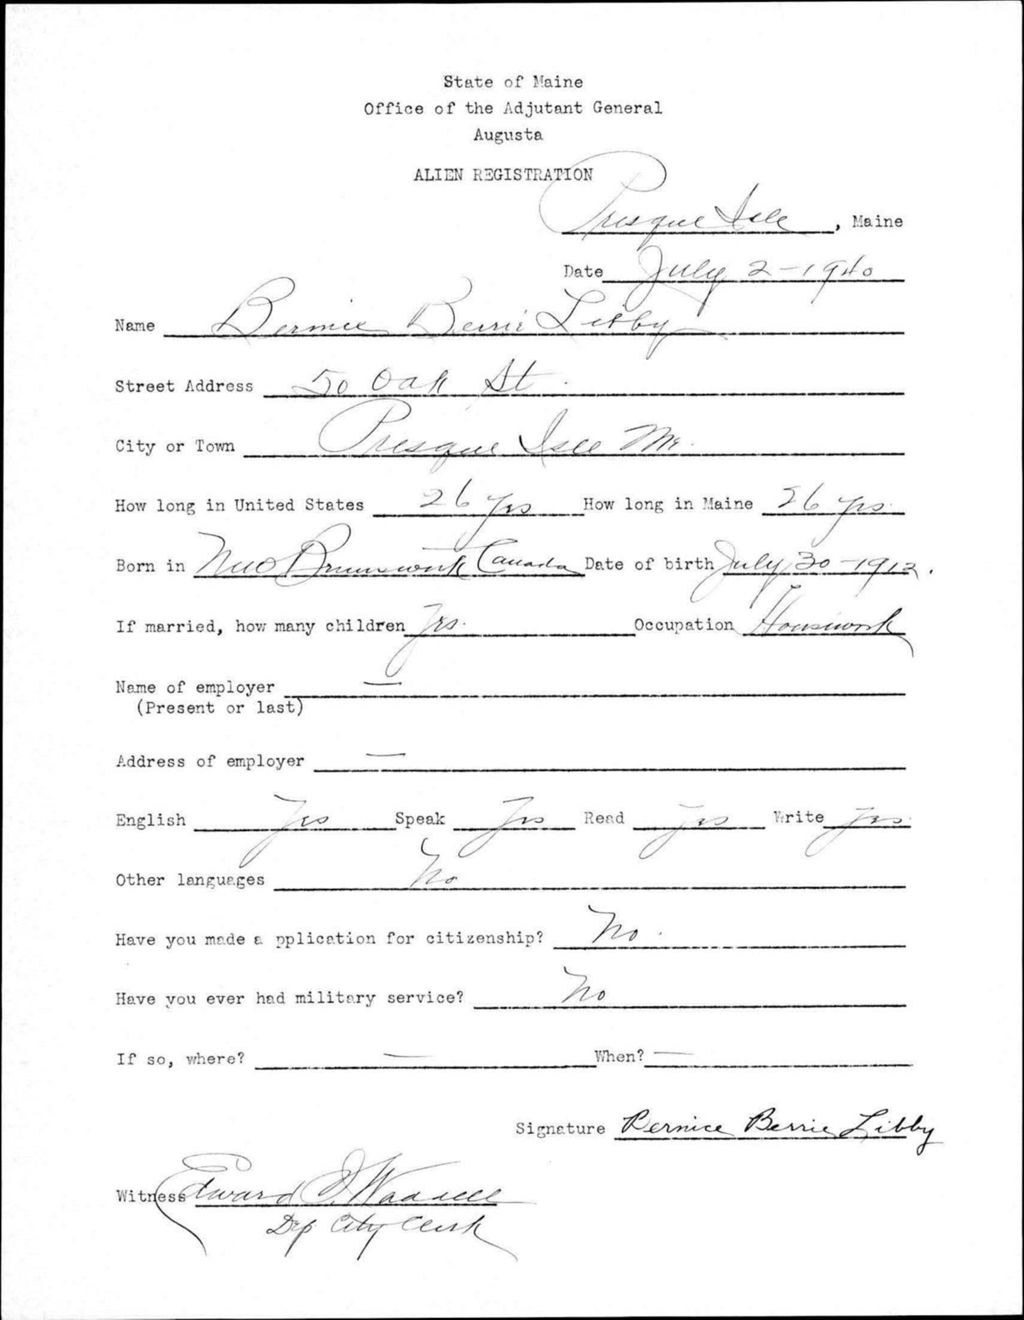 State of Maine
Office of the Adjutant General
Augusta
ALIEN REGISTRATION
Presque Isle, Maine
Date July 2-1940
Name Bernice Berrie Libby
Street Address 50 Oak St.
City or Town Presque Isle Me.
How long in United States 26 yrs How long in Maine 26 yrs.
Born in New Brunswick Canada Date of birth July 30-1912.
If married, how many children Yes. Occupation Housework
Name of employer —
(Present or last)
Address of employer —
English Yes Speak Yes Read Yes Write Yes.
Other languages No
Have you made a pplication for citizenship? No.
Have you ever had military service? No
If so, where? — When? —
Signature Bernice Berrie Libby
Witness Edward J. Waddell
Dep City Clerk